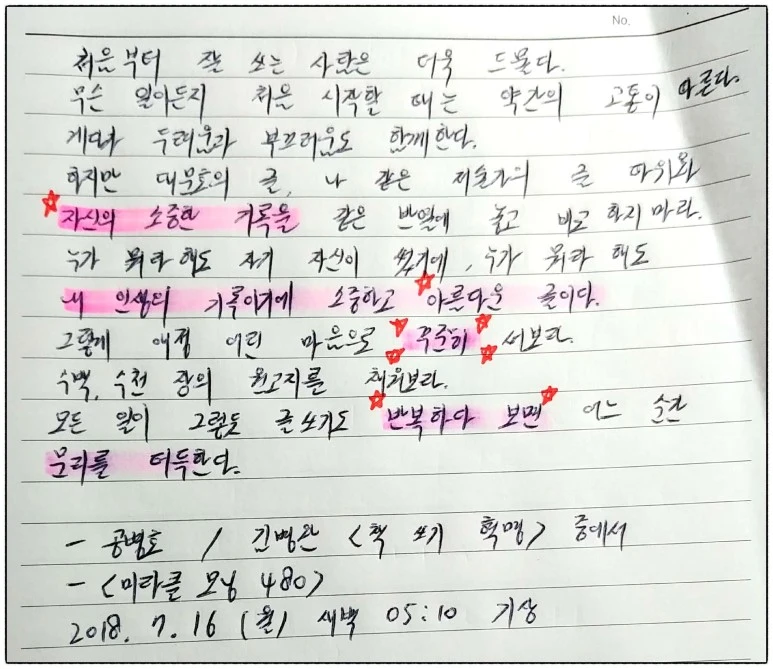 No.
처음부터 잘 쓰는 사람은 더욱 드물다.
무슨 일이든지 처음 시작할 때는 약간의 고통이 따른다.
게다가 두려움과 부끄러움도 함께한다.
하지만 대문호의 글, 나 같은 저술가의 글 따위와
자신의 소중한 기록을 같은 반열에 놓고 비교 하지 마라.
누가 뭐라 해도 자기 자신이 썼기에, 누가 뭐라 해도
내 인생의 기록이기에 소중하고 아름다운 글이다.
그렇게 애정 어린 마음으로 꾸준히 써보라.
수백, 수천 장의 원고지를 채워보라.
모든 일이 그렇듯 글쓰기도 반복하다 보면 어느 순간
문리를 터득한다.
- 공병호 / 김병완 <책 쓰기 혁명> 중에서
- <미라클 모닝 480>
2018. 7. 16 (월) 새벽 05:10 기상